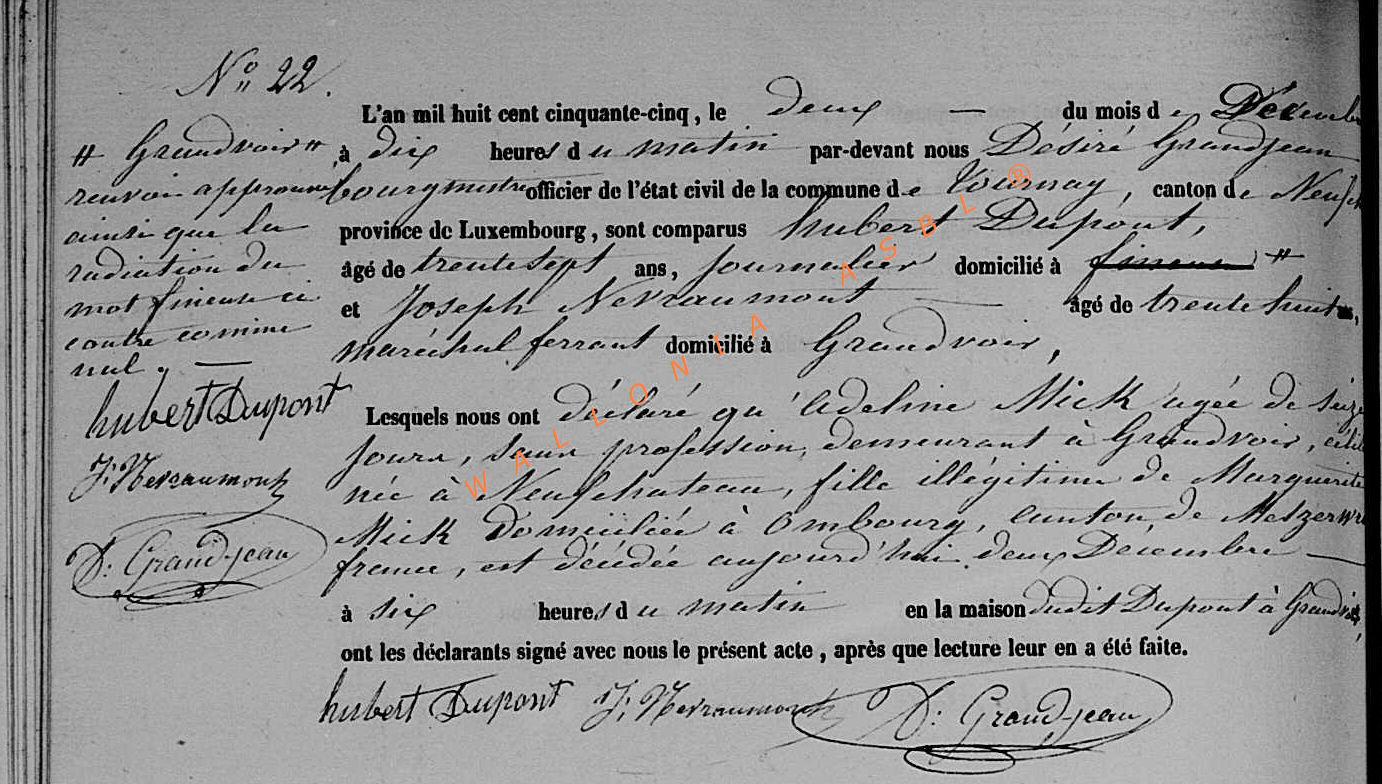 Nº 22.
L'an mil huit cent cinquante-cinq, le deux — du mois de Décembre
à dix heures du matin par-devant nous Désiré Grandjean
bourgmestre officier de l'état civil de la commune de Tournay, canton de
province de Luxembourg, sont comparus hubert Dupont,
âgé de trente sept ans, journalier domicilié à fineuse #
et Joseph Nevraumont — âgé de trente huit ans,
maréchal ferrant domicilié à Grandvoir,
Lesquels nous ont déclaré qu'Adeline Mick agée de seize
jours, sans profession, demeurant à Grandvoir,
née à Neufchateau, fille illégitime de Marguerite
Mick domiciliée à Ombourg, canton de
france, est décédée aujourd'hui deux Décembre —
à six heures du matin en la maison dudit Dupont à Grandvoir,
ont les déclarants signé avec nous le présent acte, après que lecture leur en a été faite.
hubert Dupont J. Nevraumont D. Grand-jean
# Grandvoir #
renvoi approuvé
ainsi que la
radiation du
mot fineuse ci
contre comme
nul, —
hubert Dupont
J. Nevraumont
D. Grand-jean
WALLONIA ASBL ®